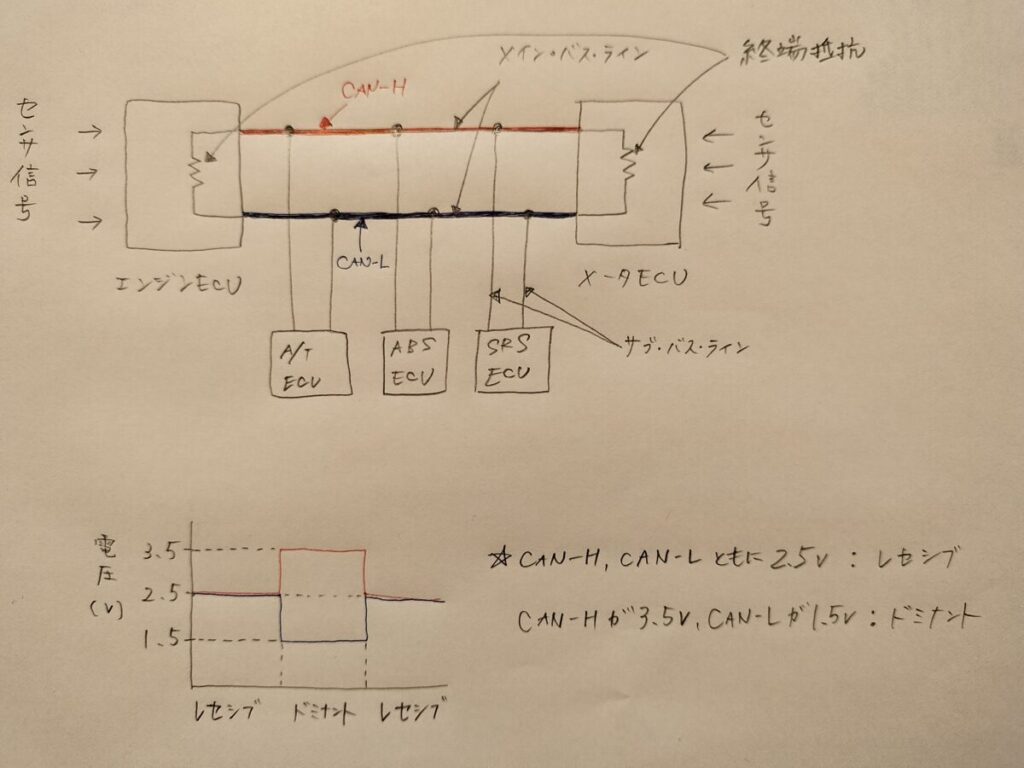 メイン・バス・ライン
終端抵抗
CAN-H
センサ信号
センサ信号
CAN-L
エンジンECU
メータECU
A/T
ECU
ABS
ECU
SRS
ECU
サブ・バス・ライン
電圧
(V)
3.5
2.5
1.5
レセシブ ドミナント レセシブ
☆CAN-H, CAN-L ともに 2.5V : レセシブ
CAN-Hが3.5V, CAN-Lが1.5V : ドミナント